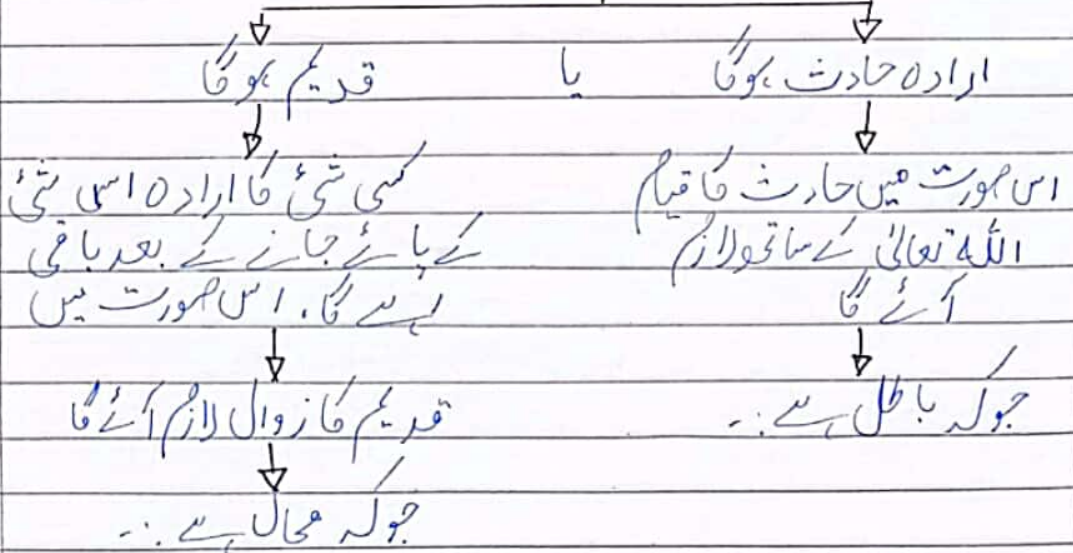 ارادہ حادث ہوگا یا قدیم ہوگا
اس صورت میں حادث کا قیام
اللہ تعالیٰ کے ساتھ لازم
آئے گا
جوکہ باطل ہے ∴
کسی شئ کا ارادہ اسی شئ
کے پائے جانے کے بعد باقی
رہے گا، اس صورت میں
قدیم کا زوال لازم آئے گا
جوکہ محال ہے ∴